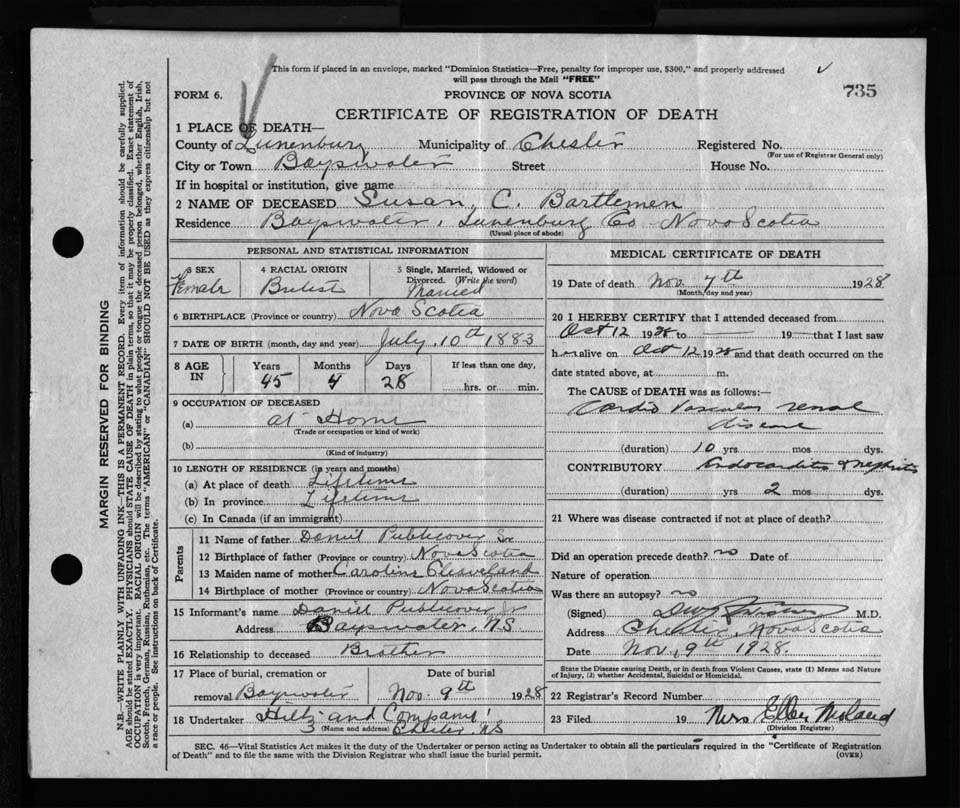 This form if placed in an envelope, marked "Dominion Statistics—Free, penalty for improper use, $300," and properly addressed
will pass through the Mail "FREE"
735
FORM 6.
PROVINCE OF NOVA SCOTIA
CERTIFICATE OF REGISTRATION OF DEATH
1 PLACE OF DEATH—
County of Lunenburg Municipality of Chester Registered No.
(For use of Registrar General only)
City or Town Bayswater Street House No.
If in hospital or institution, give name
2 NAME OF DECEASED Susan. C. Bartlemen
Residence Bayswater, Lunenburg Co Nova Scotia
(Usual place of abode)
PERSONAL AND STATISTICAL INFORMATION
3 SEX
Female
4 RACIAL ORIGIN
5 Single, Married, Widowed or
Divorced. (Write the word)
Married
6 BIRTHPLACE (Province or country) Nova Scotia
7 DATE OF BIRTH (month, day and year) July. 10th 1883
8 AGE IN
Years Months Days If less than one day,
45 4 28 hrs. or min.
9 OCCUPATION OF DECEASED
(a) at Home
(Trade or occupation or kind of work)
(b)
(Kind of industry)
10 LENGTH OF RESIDENCE (in years and months)
(a) At place of death Lifetime
(b) In province Lifetime
(c) In Canada (if an immigrant)
Parents
11 Name of father Daniel Publicover Sr
12 Birthplace of father (Province or country) Nova Scotia
13 Maiden name of mother Caroline Cleaveland
14 Birthplace of mother (Province or country) Nova Scotia
15 Informant's name Daniel Publicover Jr
Address Bayswater, NS
16 Relationship to deceased Brother
17 Place of burial, cremation or Date of burial
removal Bayswater Nov. 9th 1928
18 Undertaker Hiltz and Company
(Name and address) Chester, NS
MEDICAL CERTIFICATE OF DEATH
19 Date of death Nov 7th 1928
(Month, day and year)
20 I HEREBY CERTIFY that I attended deceased from
Oct 12 1928 to — 19— that I last saw
h er alive on Oct 12, 1928 and that death occurred on the
date stated above, at m.
The CAUSE of DEATH was as follows:
Cardio Vascular renal
disease
(duration) 10 yrs. mos. dys.
CONTRIBUTORY Endocarditis & nephritis
(duration) yrs 2 mos dys.
21 Where was disease contracted if not at place of death?
Did an operation precede death? no Date of
Nature of operation
Was there an autopsy? no
(Signed) M.D.
Address Chester, Nova Scotia
Date Nov. 9th 1928.
State the Disease causing Death, or in death from Violent Causes, state (1) Means and Nature
of Injury, (2) whether Accidental, Suicidal or Homicidal.
22 Registrar's Record Number
23 Filed 19 Mrs
(Division Registrar)
SEC. 46—Vital Statistics Act makes it the duty of the Undertaker or person acting as Undertaker to obtain all the particulars required in the "Certificate of Registration
of Death" and to file the same with the Division Registrar who shall issue the burial permit. (OVER)
MARGIN RESERVED FOR BINDING
N.B.—WRITE PLAINLY WITH UNFADING INK—THIS IS A PERMANENT RECORD. Every item of information should be carefully supplied.
AGE should be stated EXACTLY. PHYSICIANS should STATE CAUSE OF DEATH in plain terms, so that it may be properly classified. Exact statement of
OCCUPATION is very important. RACIAL ORIGIN will be described by stating to what people or tongue the deceased person belonged, whether English, Irish,
Scotch, French, German, Russian, Ruthenian, etc. The terms "AMERICAN" or "CANADIAN" SHOULD NOT BE USED as they express citizenship but not
a race or people. See instructions on back of Certificate.